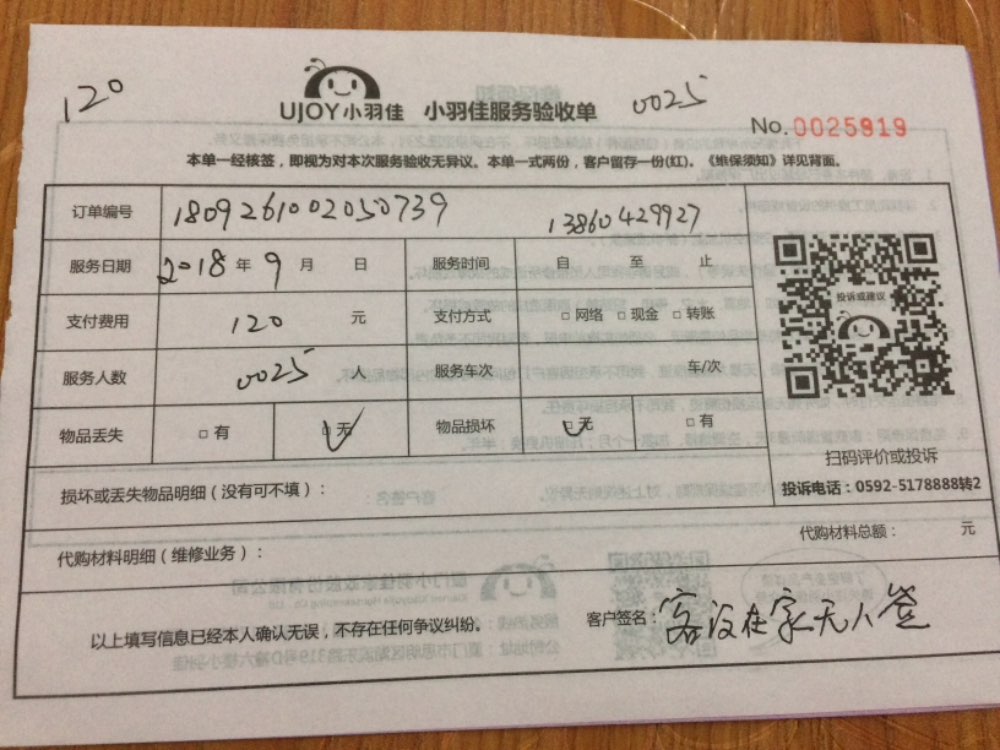 120
UJOY小羽佳 小羽佳服务验收单
0025
No.0025919
本单一经核签，即视为对本次服务验收无异议。本单一式两份，客户留存一份(红)。《维保须知》详见背面。
订单编号 1809261002050739 13860429927
服务日期 2018年9月 日 服务时间 自 至 止
支付费用 120 元 支付方式 □网络 □现金 □转账
服务人数 0025 人 服务车次 车/次
物品丢失 □有 □无 物品损坏 □无 □有
投诉或建议
扫码评价或投诉
投诉电话：0592-5178888转2
损坏或丢失物品明细（没有可不填）：
代购材料明细（维修业务）： 代购材料总额： 元
以上填写信息已经本人确认无误，不存在任何争议纠纷。 客户签名：客没在家无人签